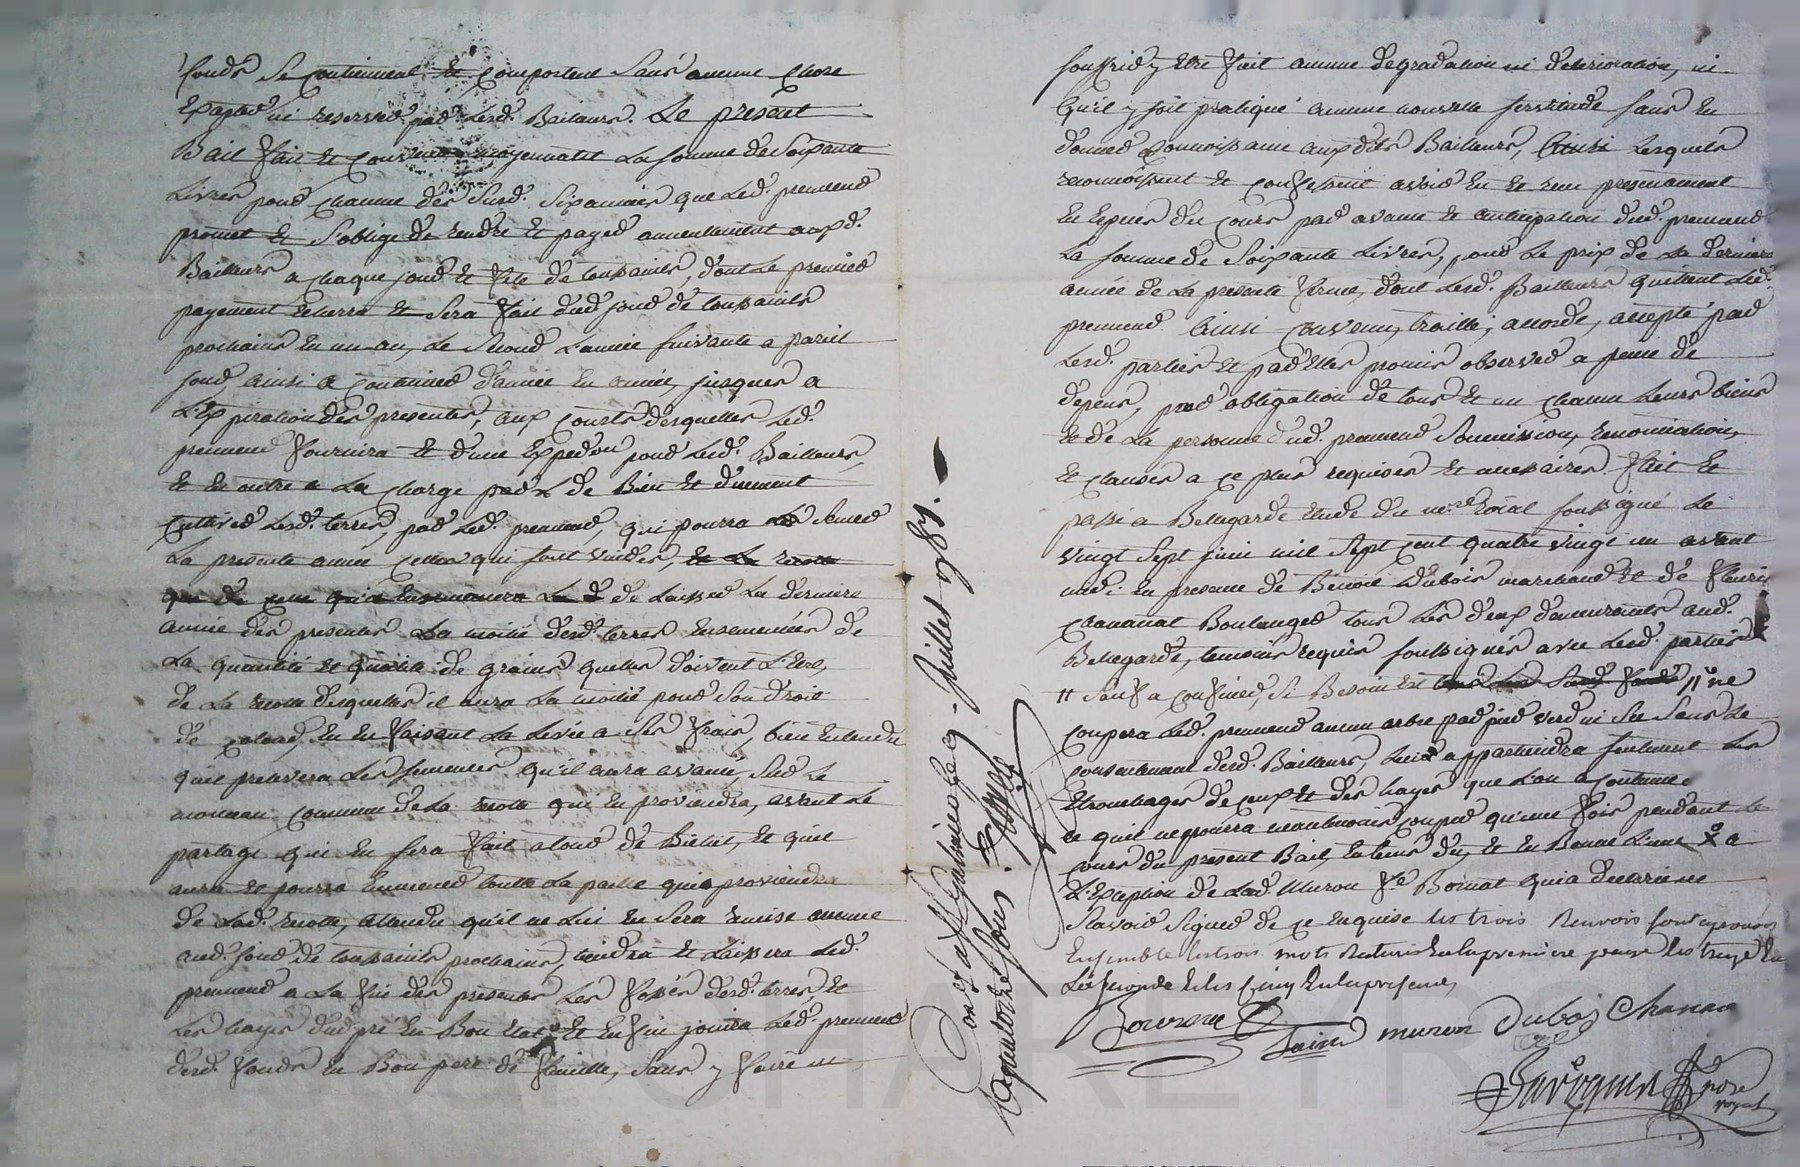 fonds se contiennent et comportent sans aucune chose
Excepter ni reserver par lesd. Bailleurs. Le present
Bail fait et convenu moyennant La somme de Soixante
Livres pour chacune des susd. six années que led. preneur
promet et s'oblige de rendre et payer annuellement auxd.
Bailleurs a chaque jour et fete de toussaints, dont le premier
payement echerra et sera fait dud. jour de toussaints
prochains en un an, le second L'année suivante a pareil
jour, ainsi a continuer d'année en année, jusques a
L'Expiration des presentes, aux couts desquelles led.
preneur fournira et d'une Expedon pour lesd. Bailleurs,
et en outre a La charge par de Bien et duement
Cultiver lesd. terres, par led. preneur, qui pourra semer
La presente année celles qui sont vuides, et La recolte
de Laisser La derniere
année des presentes La moitié desd. terres Ensemencées de
La quantité et qualité de grains quelles doivent L'etre,
de La recolte desquelles il aura La moitié pour son droit
de colon, en en faisant La Levée a ses frais, bien entendu
quil prelevera Les semences qu'il aura avancé, sur Le
monceau commun de La recolte qui en proviendra, avant Le
partage qui en sera fait et quil
aura et pourra Emmener toute La paille qui proviendra
de Lad. recolte, attendu qu'il ne Lui en sera remise aucune
aud. jour de toussaints prochains, tiendra et Laissera Led.
preneur a La fin des presentes Les fossés desd. terres, et
Les hayes dud. pré en Bon Etat et enfin jouira Led. preneur
desd. fonds en Bon pere de famille, sans y faire ni
Controlé a St Galmier le 9 Juillet 1781.
sous.
souffrir y etre fait aucune degradation ni deterioration, ni
qu'il y soit pratiqué aucune nouvelle servitude sans en
donner connoissance auxdits Bailleurs, Lesquels
reconnoissent et confessent avoir eu et recu presentement
en Especes du cours par avance et anticipation dud. preneur
La somme de Soixante Livres, pour Le prix de La derniere
année de La presente ferme, dont Lesd. Bailleurs quittent Led.
preneur. Ainsi convenu, traitté, accordé, accepté par
Lesd. parties et par Elles promis observer a peine de
depens, par obligation de tous et un chacun Leurs biens
et de La personne dud. preneur soumission, renonciation,
et clauses a ce plus requises et necessaires. fait et
passé a Bellegarde etude du nore Roial soussigné Le
vingt Sept juin mil Sept cent quatre vingt un avant
midi: en presence de Benoit Dubois marchand et de fleuri
Chanat Boulanger tous Les deux demeurants aud.
Bellegarde, temoins requis soussignés avec Lesd. parties
// sauf a confiner, si Besoin est // ne
coupera Led. preneur aucun arbre par pied verd ni sec sans Le
consentement desd. Bailleurs, Lui appartiendra seulement Les
Etronchages de ceux et des hayes que L'on a coutume
ce quil ne pourra neanmoins couper qu'une fois pendant Le
cours du present Bail, en tems du, et en Bonne Lune X a
L'Exception de Lad. Muron Ve Boinat qui a declaré ne
savoir signer de ce Enquise les trois Renvois sont approuvés
Ensemble les trois mots raturés en la premiere page les treize En
La seconde et les cinq En la presente,
muron Dubois Chanat
nore
royal